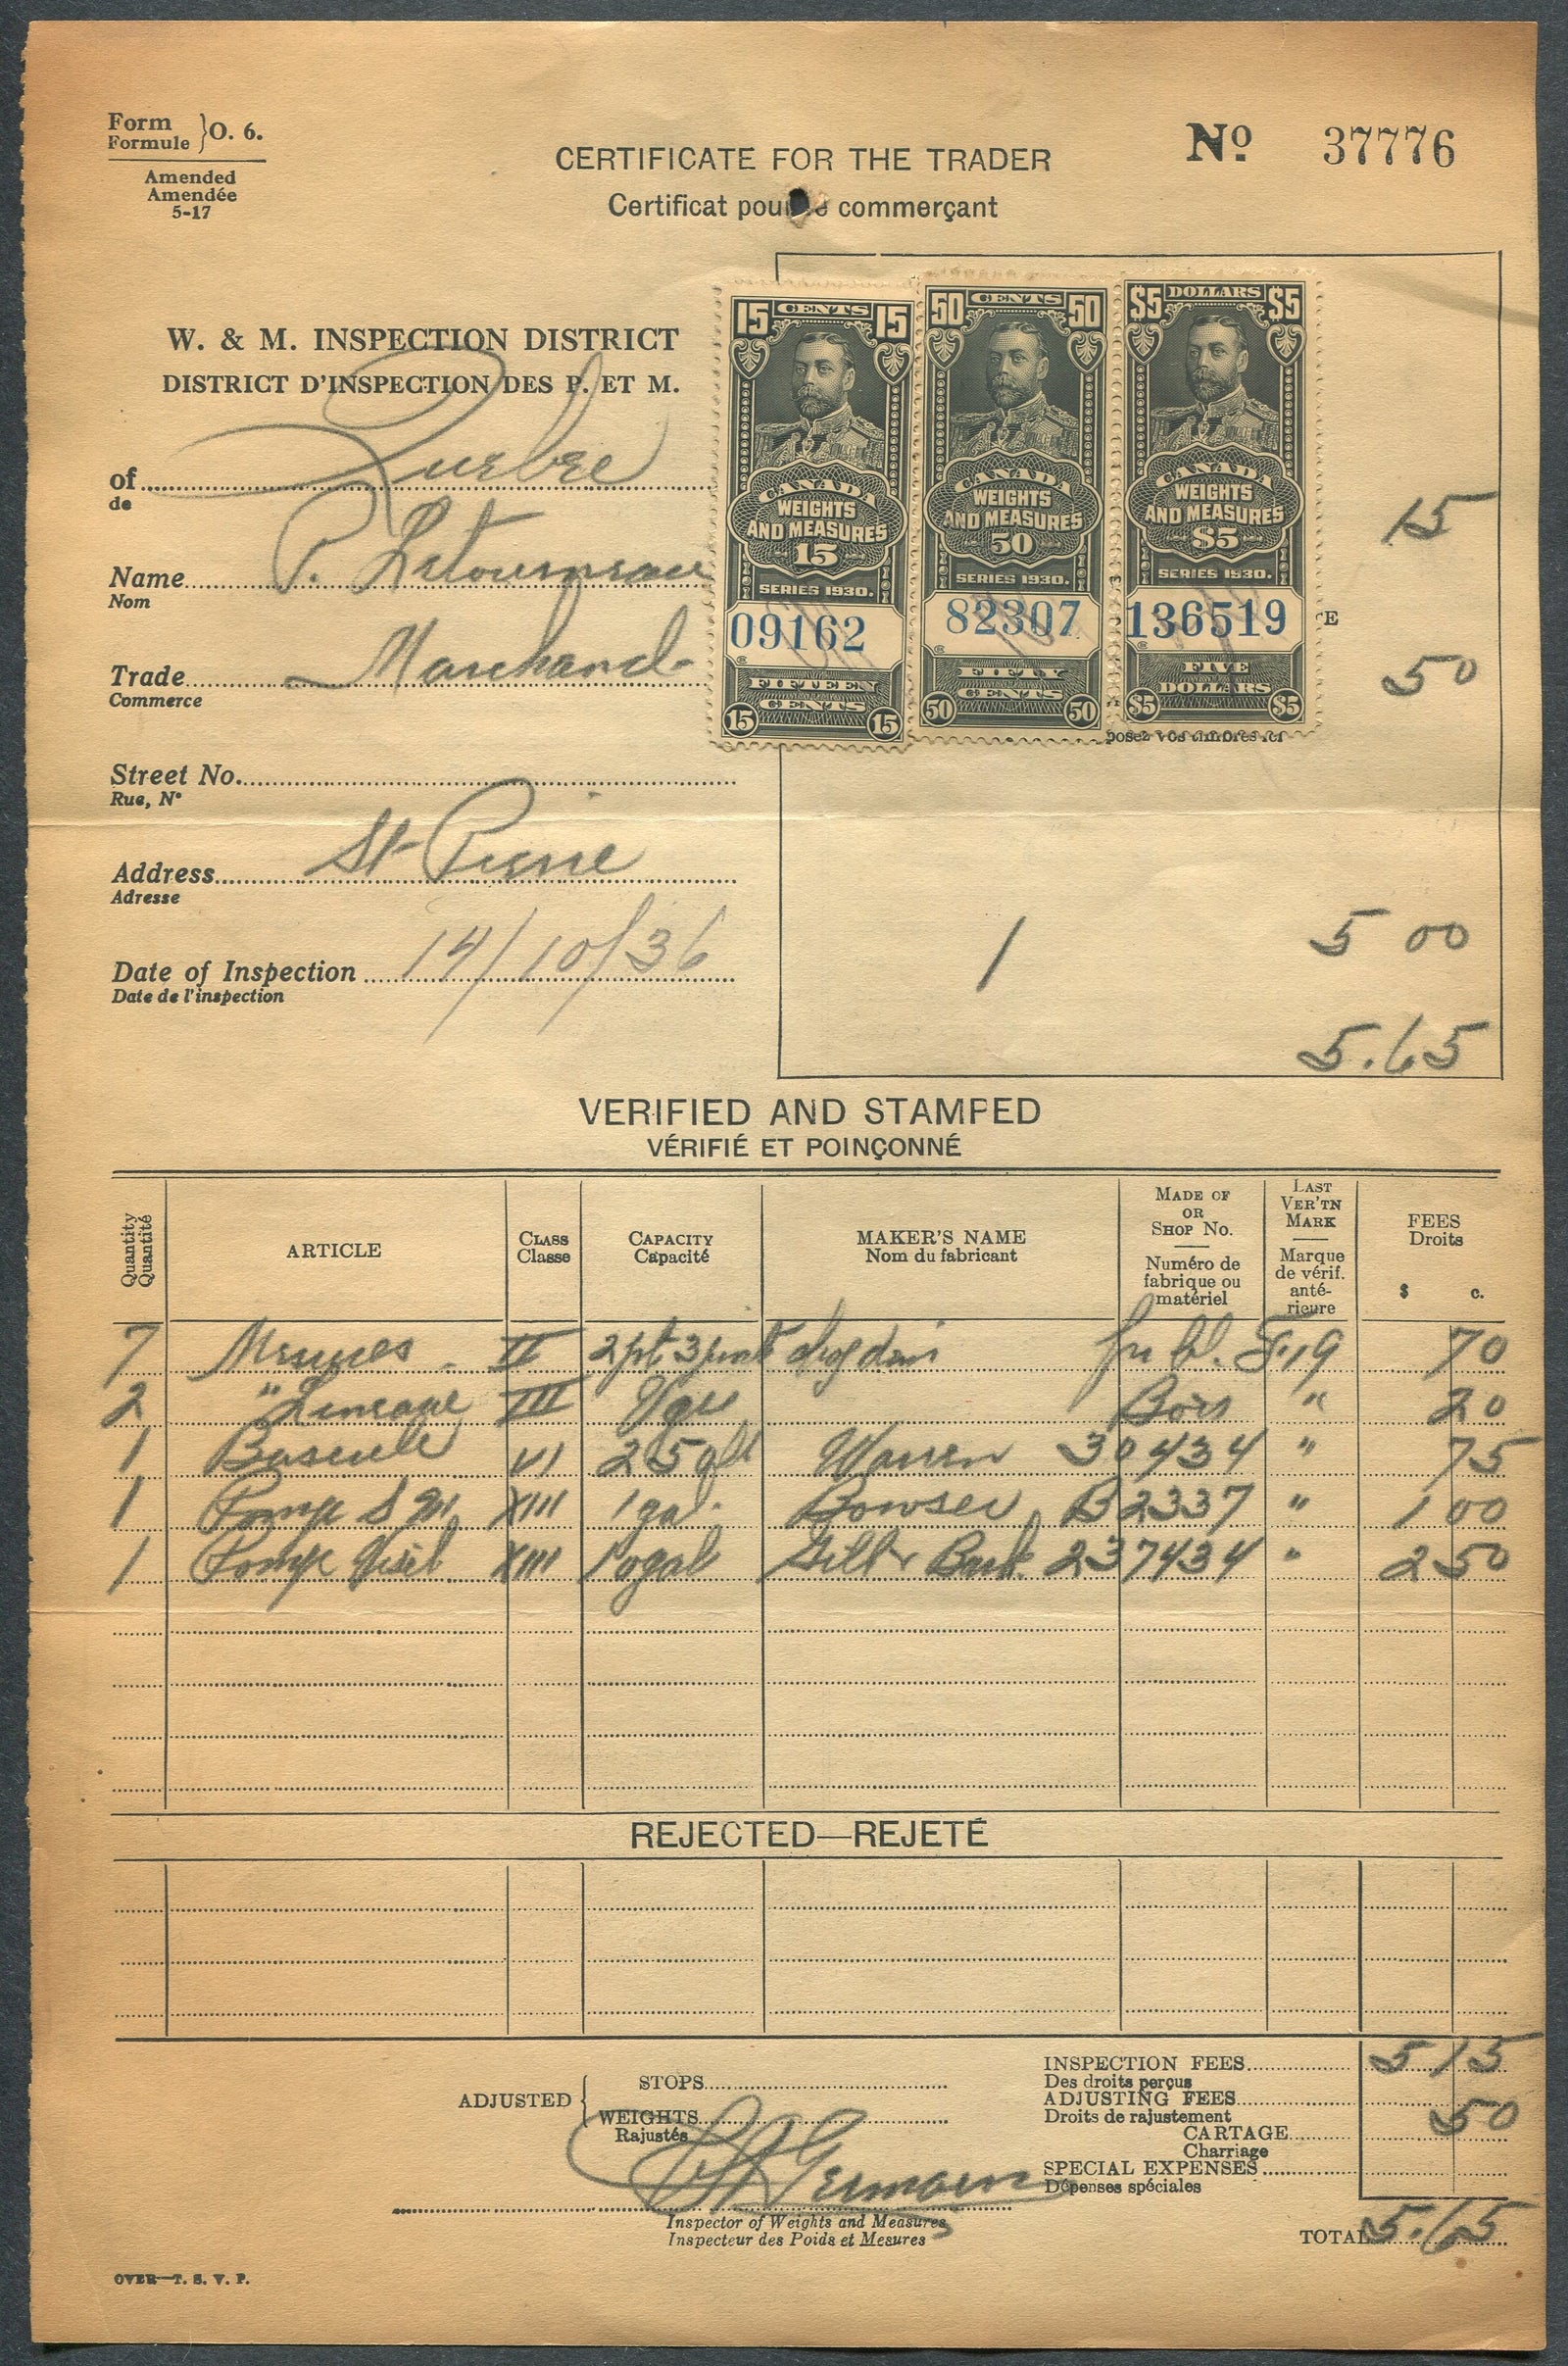 Form
Formule } O. 6.
Amended
Amendée
5-17
CERTIFICATE FOR THE TRADER
Certificat pour commerçant
No. 37776
W. & M. INSPECTION DISTRICT
DISTRICT D'INSPECTION DES P. ET M.
of Quebec
de
Name P. Letourneau
Nom
Trade Marchand
Commerce
Street No.
Rue, No
Address St Pierre
Adresse
Date of Inspection 14/10/36
Date de l'inspection
15 CENTS 15
CANADA
WEIGHTS
AND MEASURES
15
SERIES 1930.
09162
FIFTEEN
CENTS
15 15
50 CENTS 50
CANADA
WEIGHTS
AND MEASURES
50
SERIES 1930.
82307
FIFTY
CENTS
50 50
$5 DOLLARS $5
CANADA
WEIGHTS
AND MEASURES
$5
SERIES 1930.
136519
FIVE
DOLLARS
$5 $5
E
posez vos timbres ici
15
50
1 5 00
5.65
VERIFIED AND STAMPED
VÉRIFIÉ ET POINÇONNÉ
Quantity
Quantité
ARTICLE
CLASS
Classe
CAPACITY
Capacité
MAKER'S NAME
Nom du fabricant
MADE OF
OR
SHOP NO.
Numéro de
fabrique ou
matériel
LAST
VER'TN
MARK
Marque
de vérif.
anté-
rieure
FEES
Droits
$ c.
7 Mesures II 2pt 3 F19 70
2 " III Bois " 20
1 Bascule VI 250 Warren 30434 " 75
1 Pompe XIII 1 gal. Bowser B2337 " 1 00
1 Pompe XIII 10gal Gilb & Bark. 237434 " 2 50
REJECTED—REJETÉ
ADJUSTED {
STOPS
WEIGHTS
Rajustés
St Germain
Inspector of Weights and Measures
Inspecteur des Poids et Mesures
INSPECTION FEES 5 15
Des droits perçus
ADJUSTING FEES 50
Droits de rajustement
CARTAGE
Charriage
SPECIAL EXPENSES
Dépenses spéciales
TOTAL 5.65
OVER—T. S. V. P.